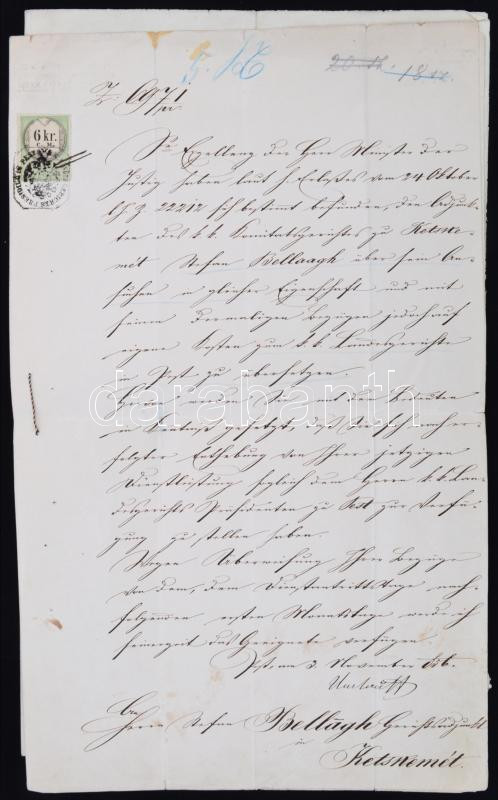 5.
20 kr. 18
Z. 6971
pr.
6 kr.
C. M.
Se Exzellenz der Herr Minister der
Justiz haben laut h. Erlaßes vom 24 Oktober
l. J. Z. 22212 sich bestimmt befunden, den Adjunk-
ten des k. k. Komitatsgerichtes zu Ketske-
mét Stefan Bellaagh über sein An-
suchen in gleicher Eigenschaft und mit
seinen dermaligen Bezügen jedoch auf
eigene Kosten zum k. k. Landesgerichte
in Pest zu übersetzen.
Hievon werden Sie mit dem Bedeuten
in Kenntniß gesetzt, daß Sie sich nach er-
folgter Enthebung von Ihrer jetzigen
Dienstleistung sogleich dem Herrn k. k. Lan-
desgerichts Präsidenten zu Pest zur Verfü-
gung zu stellen haben.
Wegen Überweisung Ihrer Bezüge
von dem, dem Dienstantrittstage nach-
folgenden ersten Monatstage werde ich
seinerzeit das Geeignete verfügen.
Pest am 3. November
An
Herrn Stefan Bellágh Gerichtsadjunkt
in
Ketskemét.
darabanth